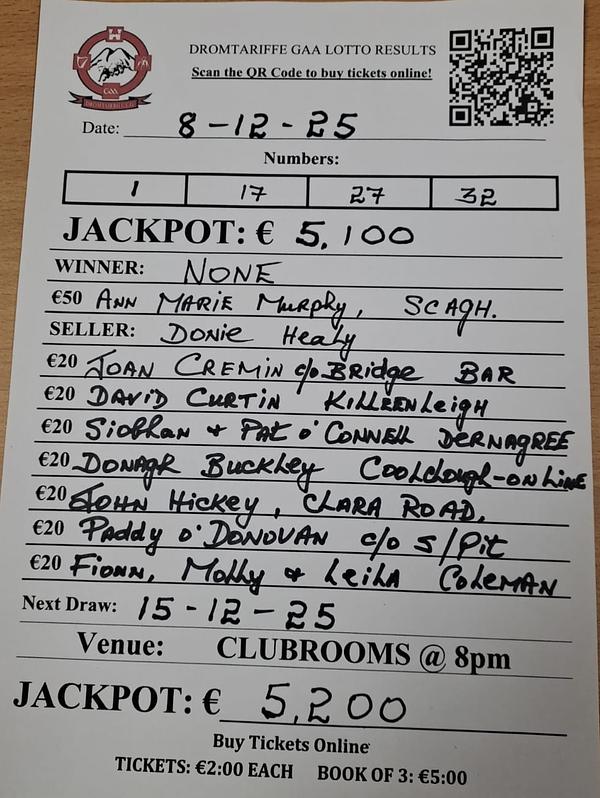 DROMTARIFFE GAA LOTTO RESULTS
Scan the QR Code to buy tickets online!
GAA
DROMTARIFFE G.A.A
Date: 8-12-25
Numbers:
1 17 27 32
JACKPOT: € 5,100
WINNER: NONE
€50 ANN MARIE Murphy, SCAGH.
SELLER: Donie Healy
€20 JOAN CREMIN c/o BRidge BAR
€20 DAVID CURTIN KILLEENLeigH
€20 Siobhan + PAT O'CONNELL DERNAGREE
€20 DONAGh BucKLey Coolclough-ONLINE
€20 JOHN Hickey, CLARA ROAD.
€20 Paddy O'DONOVAN c/o S/Pit
€20 Fionn, Molly & LeiLA COLEMAN
Next Draw: 15-12-25
Venue: CLUBROOMS @ 8pm
JACKPOT: € 5,200
Buy Tickets Online
TICKETS: €2:00 EACH BOOK OF 3: €5:00